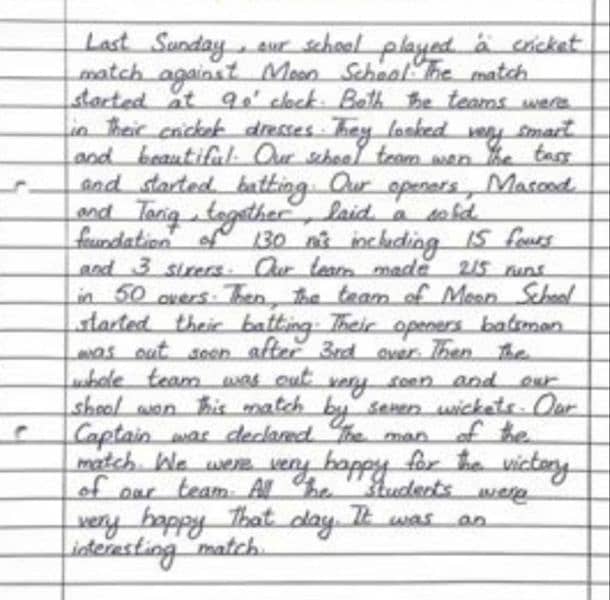 Last Sunday, our school played a cricket
match against Moon School. The match
started at 9 o' clock. Both the teams were
in their cricket dresses. They looked very smart
and beautiful. Our school team won the toss
and started batting. Our openers, Masood
and Tariq, together, laid a solid
foundation of 130 rus including 15 fours
and 3 sixers. Our team made 215 runs
in 50 overs. Then, the team of Moon School
started their batting. Their openers batsman
was out soon after 3rd over. Then the
whole team was out very soon and our
shool won this match by seven wickets. Our
Captain was declared the man of the
match. We were very happy for the victory
of our team. All the students were
very happy that day. It was an
interesting match.